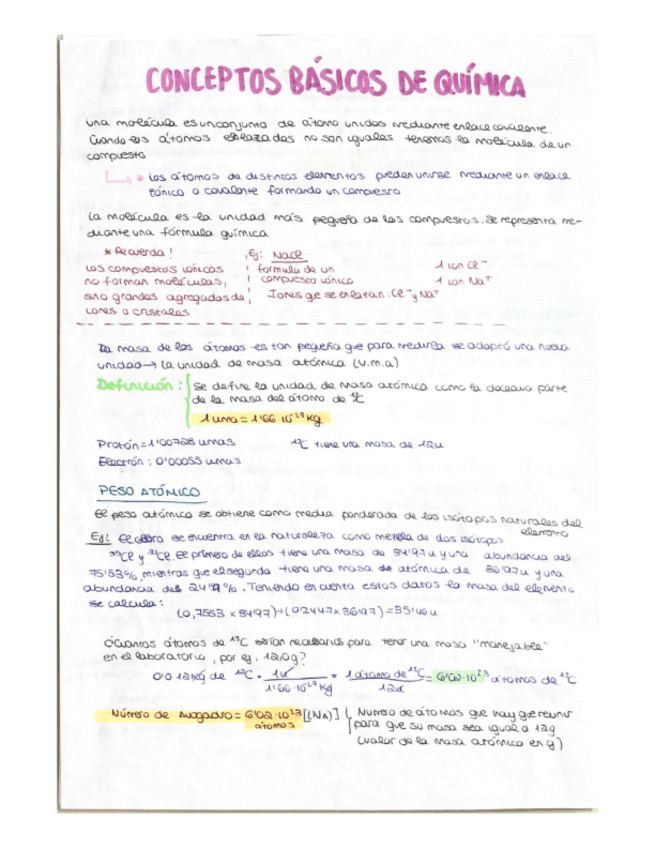 CONCEPTOS BÁSICOS DE QUÍMICA
una molécula es un conjunto de átomo unidos mediante enlace covalente.
Cuando los átomos enlazados no son iguales tenemos la molécula de un
compuesto
Los átomos de distintos elementos pueden unirse mediante un enlace
iónico o covalente formando un compuesto
La molécula es la unidad más pequeña de los compuestos. Se representa me-
diante una fórmula química
* Recuerda!
Los compuestos iónicos
no forman moléculas,
sino grandes agregados de
iones o cristales
Ej: NaCl
fórmula de un
compuesto iónico
Iones que se enlazan: Cl⁻ y Na⁺
1 ion Cl⁻
1 ion Na⁺
La masa de los átomos es tan pequeña que para medirla se adoptó una nueva
unidad → la unidad de masa atómica (u.m.a)
Definición: Se define la unidad de masa atómica como la doceava parte
de la masa del átomo de ¹²C
1 uma = 1'66·10⁻²⁷ Kg
Protón = 1'00728 umas
¹²C tiene una masa de 12u
Electrón: 0'00055 umas
PESO ATÓMICO
El peso atómico se obtiene como media ponderada de los isótopos naturales del
elemento
Ej: El cloro se encuentra en la naturaleza como mezcla de dos isótopos
³⁵Cl y ³⁷Cl. El primero de ellos tiene una masa de 34'97u y una abundancia del
75'53%, mientras que el segundo tiene una masa de atómica de 36'97u y una
abundancia del 24'47%. Teniendo en cuenta estos datos la masa del elemento
se calcula:
(0,7553 x 34'97)+(0'2447 x 36'97) = 35'46u
¿Cuantos átomos de ¹²C serían necesarios para tener una masa "manejable"
en el laboratorio, por ej, 12,0g?
0'012Kg de ¹²C · 1u / 1'66·10⁻²⁷Kg * 1 átomo de ¹²C / 12u = 6'02·10²³ átomos de ¹²C
Número de Avogadro = 6'02·10²³ átomos [(NA)]
Número de átomos que hay que reunir
para que su masa sea igual a 12g
(valor de la masa atómica en g)